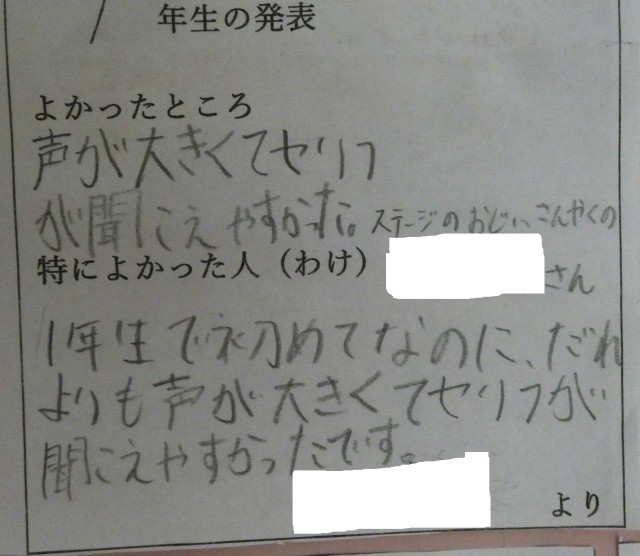 1 年生の発表
よかったところ
声が大きくてセリフ
が聞こえやすかった。
ステージのおじいさんやくの
特によかった人（わけ）
さん
1年生で初めてなのに、だれ
よりも声が大きくてセリフが
聞こえやすかったです。
より